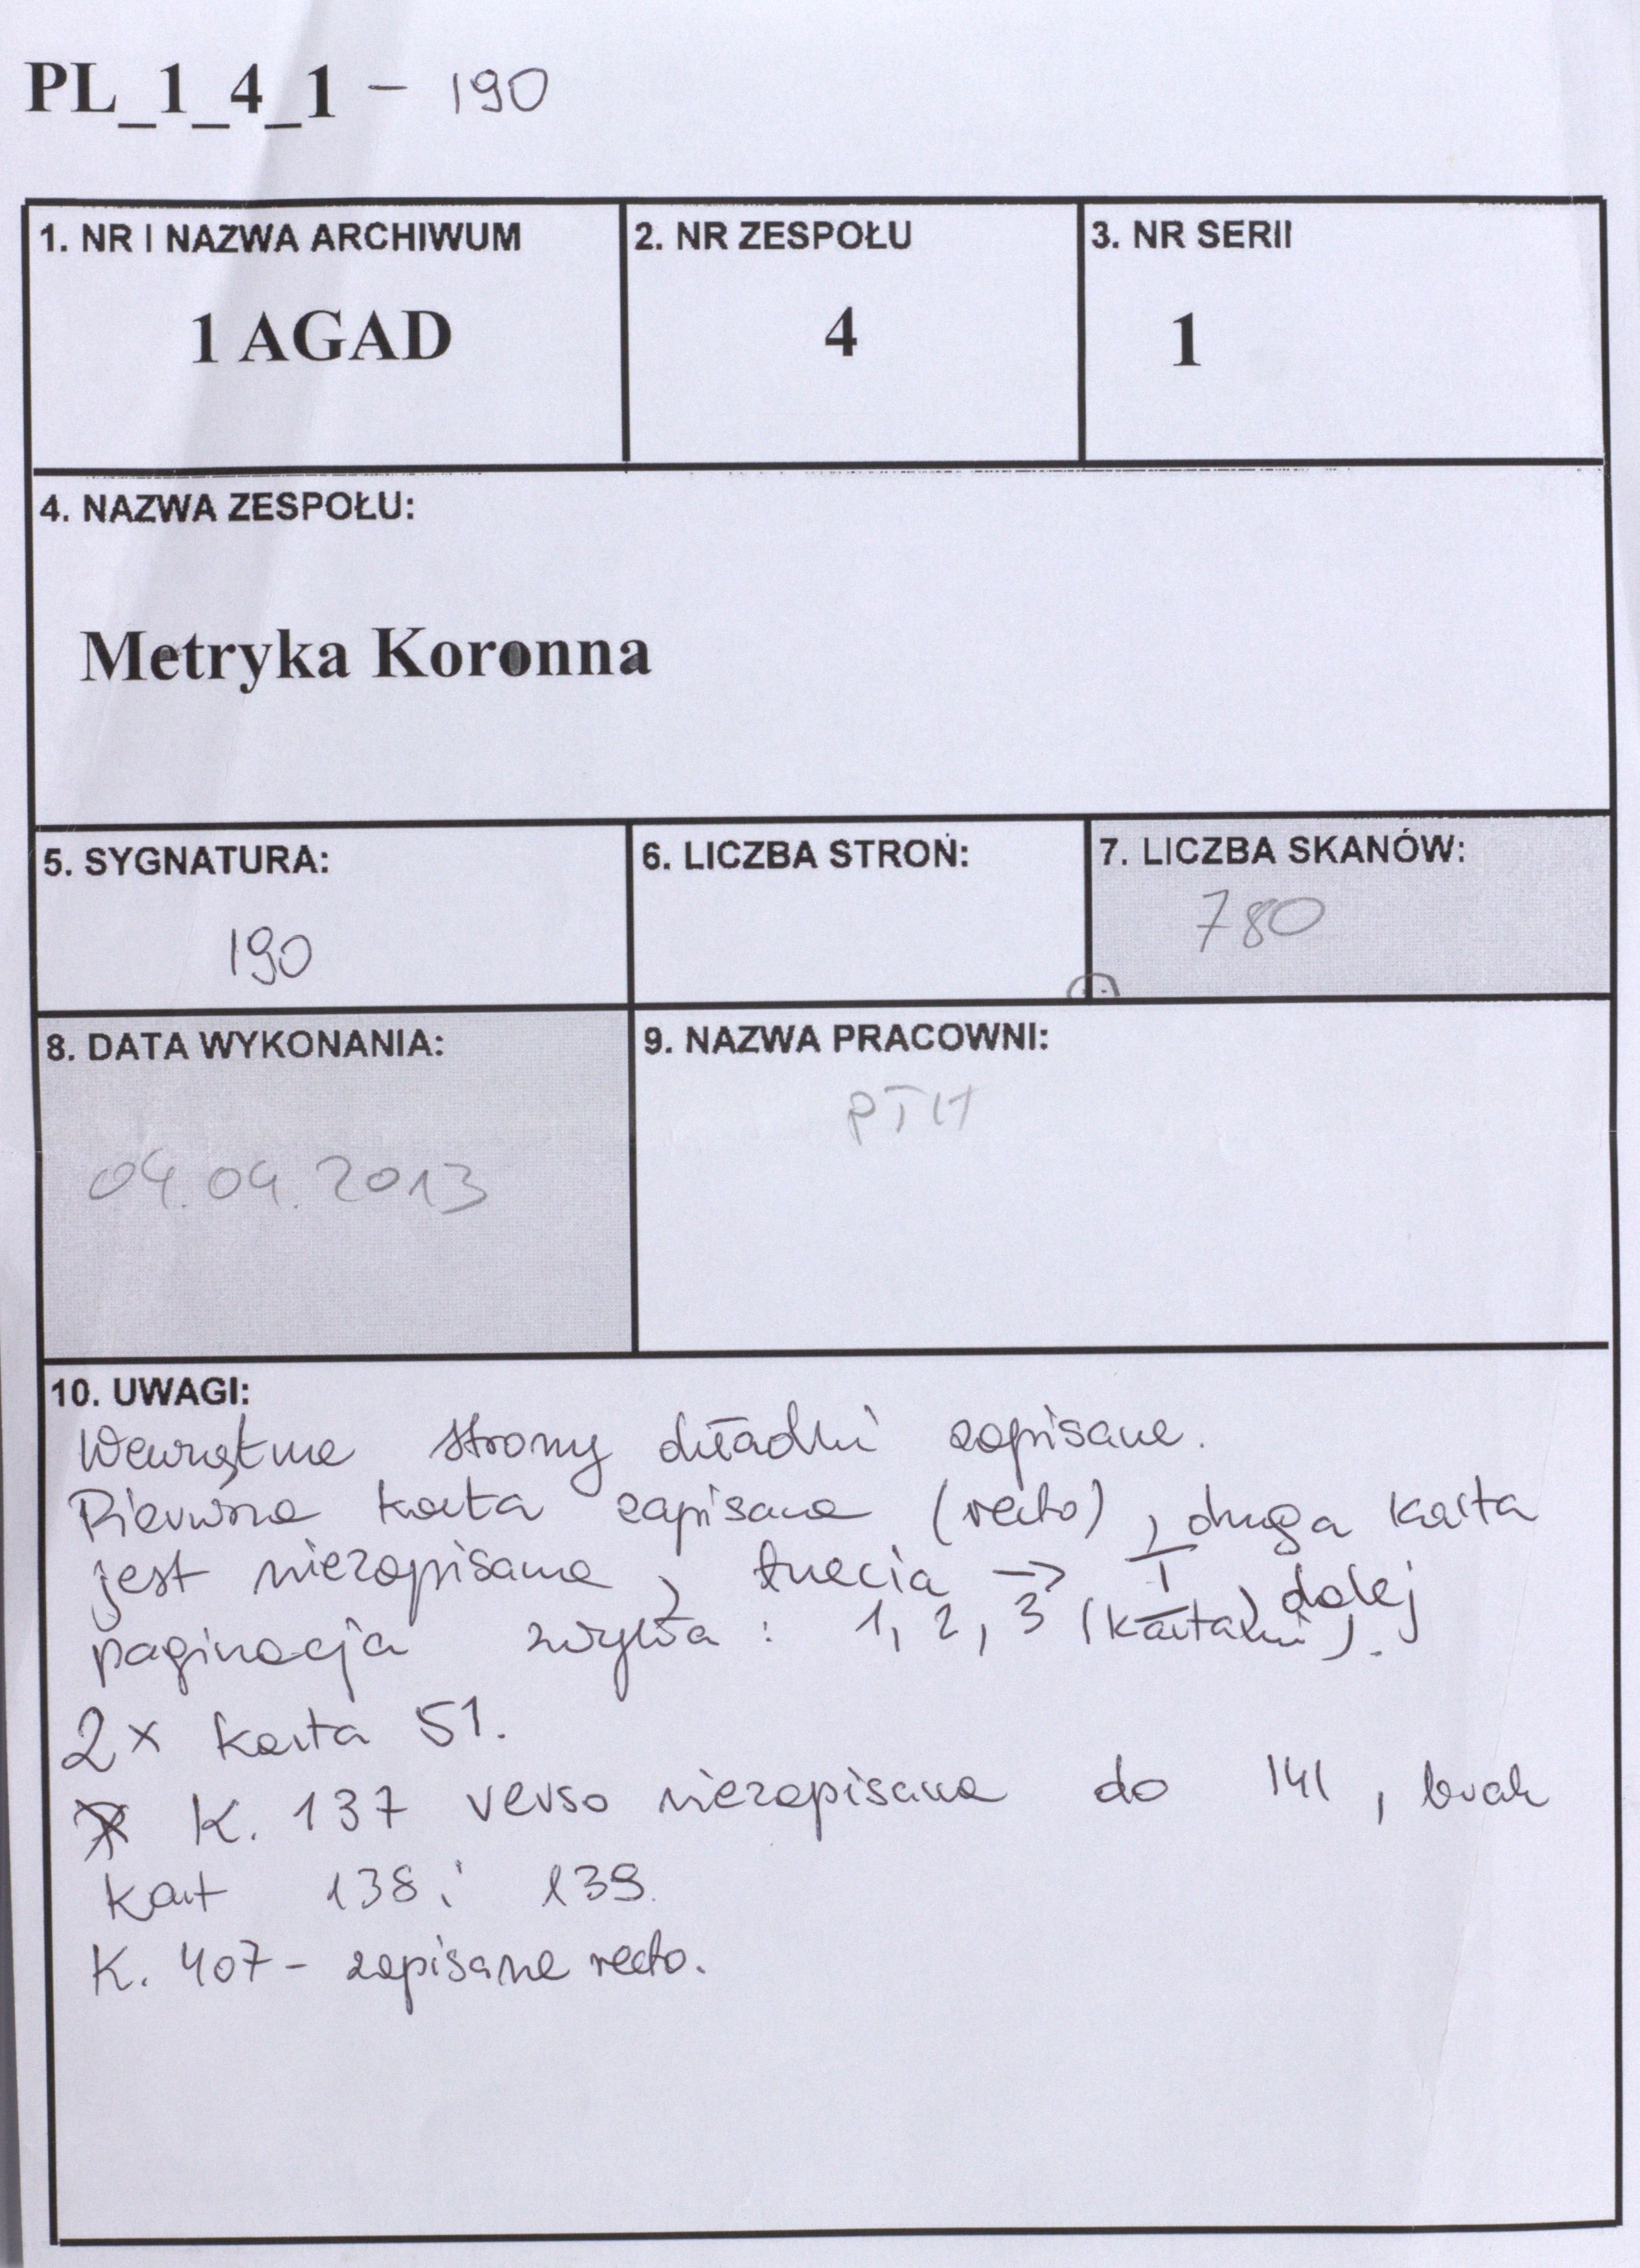 PL_1_4_1 – 190
1. NR I NAZWA ARCHIWUM
1 AGAD
2. NR ZESPOŁU
4
3. NR SERII
1
4. NAZWA ZESPOŁU:
Metryka Koronna
5. SYGNATURA:
190
6. LICZBA STRON:
7. LICZBA SKANÓW:
780
8. DATA WYKONANIA:
04.04.2013
9. NAZWA PRACOWNI:
PTH
10. UWAGI:
Wewnętrzne strony okładki zapisane.
Pierwsza karta zapisana (recto), druga karta
jest niezapisana, trzecia → I, dalej
paginacja zwykła : 1, 2, 3 (kartami).
2x karta 51.
K. 137 verso niezapisana do 141, brak
kart 138 i 139.
K. 407 – zapisane recto.